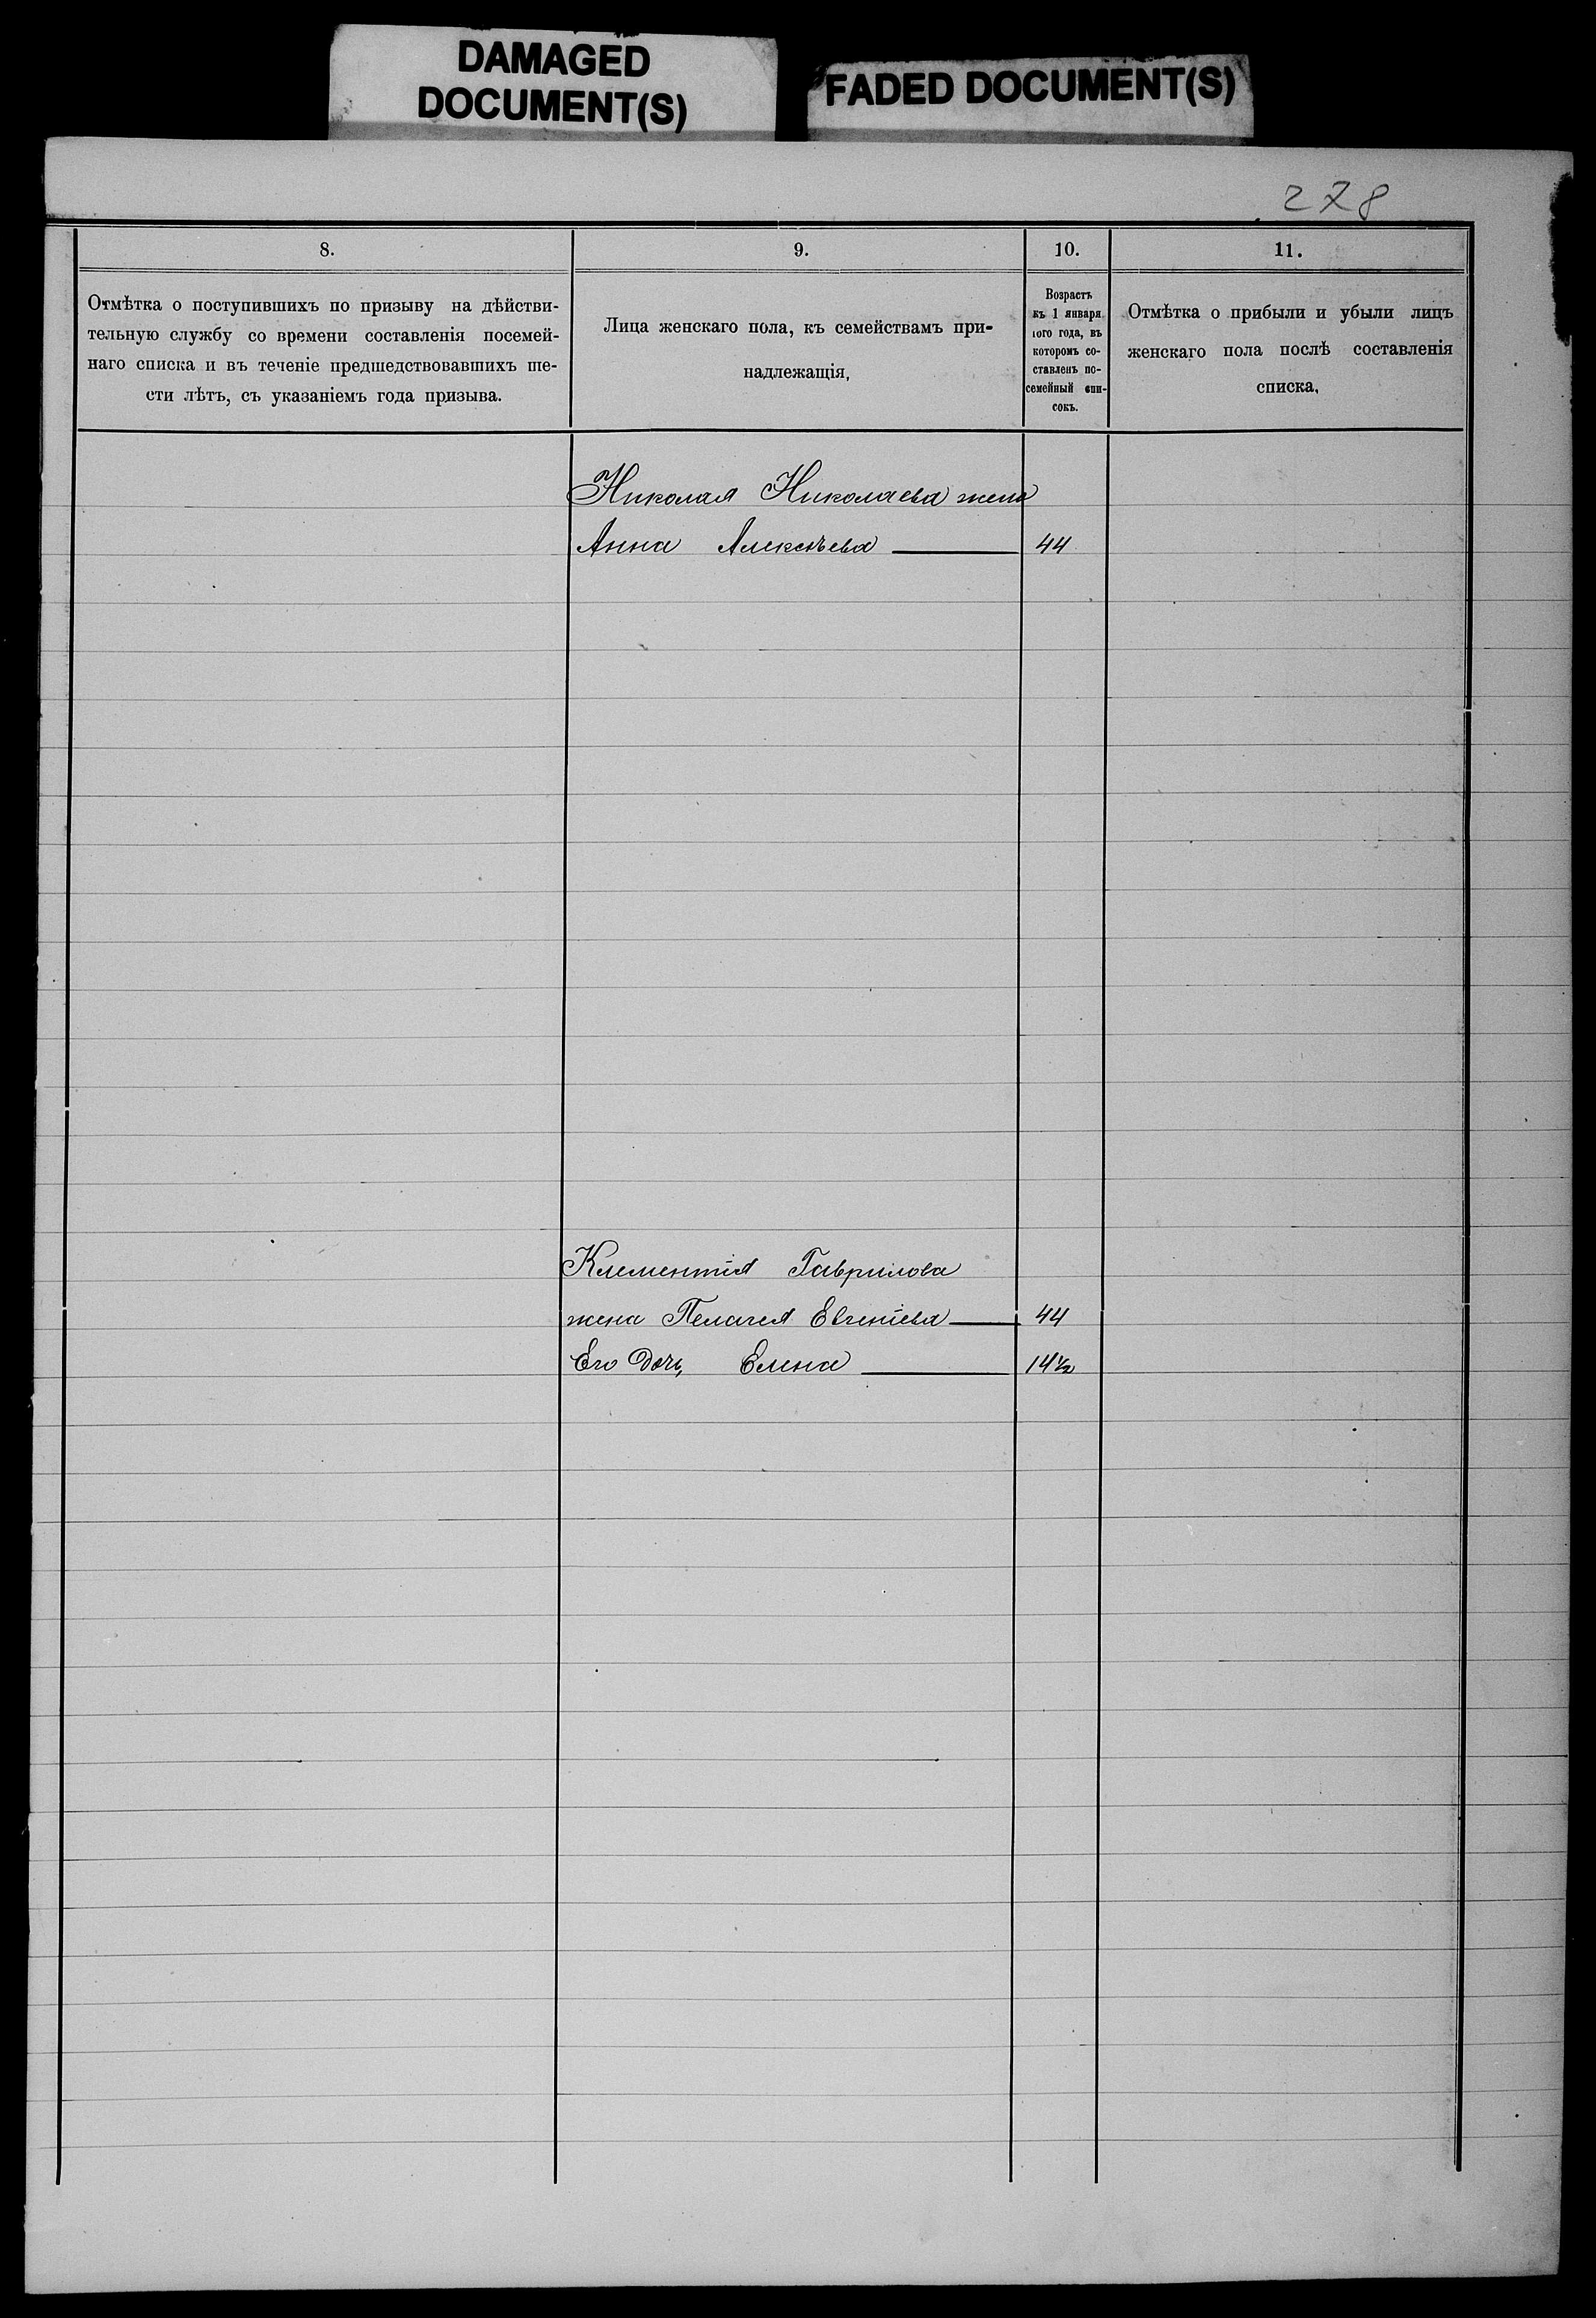 DAMAGED
DOCUMENT(S)
FADED DOCUMENT(S)
278
8.
9.
10.
11.
Отмѣтка о поступившихъ по призыву на дѣйстви-
тельную службу со времени составленія посемей-
наго списка и въ теченіе предшедствовавшихъ ше-
сти лѣтъ, съ указаніемъ года призыва.
Лица женскаго пола, къ семействамъ при-
надлежащія,
Возрастъ
къ 1 января
того года, въ
которомъ со-
ставленъ по-
семейный спи-
сокъ.
Отмѣтка о прибыли и убыли лицъ
женскаго пола послѣ составленія
списка.
Николая Николаева жена
Анна Алексѣева 44
Клементія Гаврилова
жена Пелагея Евгеніева 44
Его дочь, Елена 14½